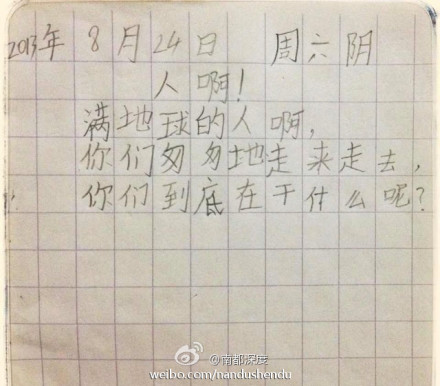 2013年 8月24日 周六 阴
人啊!
满地球的人啊,
你们匆匆地走来走去,
你们到底在干什么呢?
@南都深度
weibo.com/nandushendu